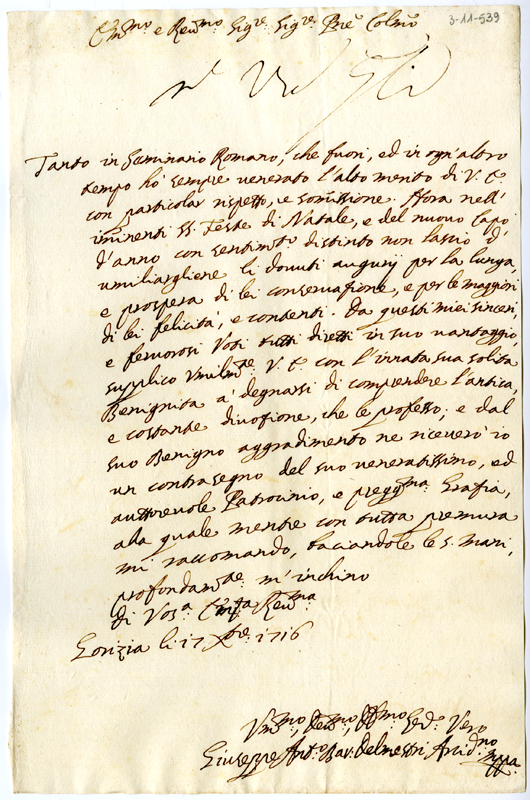 3-11-539
E'm̃o e Reu.mo Sig.re Sig.re Pñe Colm̃o
Tanto in Seminario Romano, che fuori, ed in ogn'altro
tempo ho' sempre venerato l'alto merito di V. E.
con particolar rispetto, e somissione. Hora nell'
iminenti SS. Feste di Natale, e del nuovo Capo
d'anno con sentim.to distinto non lascio d'
umiliargliene li douuti augurij per la lunga,
e prospera di lei conseruazione, e per le maggiori
di lei felicità, e contenti. Da questi miei sinceri,
e feruorosi Voti tutti diretti in suo uantaggio
supplico Vmilm.te V. E. con l'innata sua solita
Benignità a' degnarsi di comprendere l'antica,
e costante diuozione, che le professo; e dal
suo Benigno aggradimento ne riceuerò io
un contrasegno del suo veneratissimo, ed
auttoreuole Patrocinio, e pregg.ma Grazia,
alla quale mentre con tutta premura
mi raccomando, baciandole le s. mani,
profondam.te m'inchino
di Vos.a Em̃za Reu.ma
Gorizia li 17 Xbre 1716
Vm̃o, Deu.mo, Obb.mo Sed.e Vero
Giuseppe Ant.o Bar. Delmestri Arcid.no mppa.